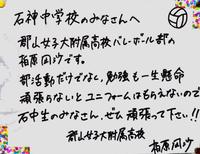 石神中学校のみなさんへ
郡山女子大附属高校バレーボール部の
柏原 凪沙です。
部活動だけでなく、勉強も一生懸命
頑張らないとユニフォームはもらえないので
石中生のみなさん、ぜひ頑張って下さい!!
郡山女子大附属高校
柏原凪沙